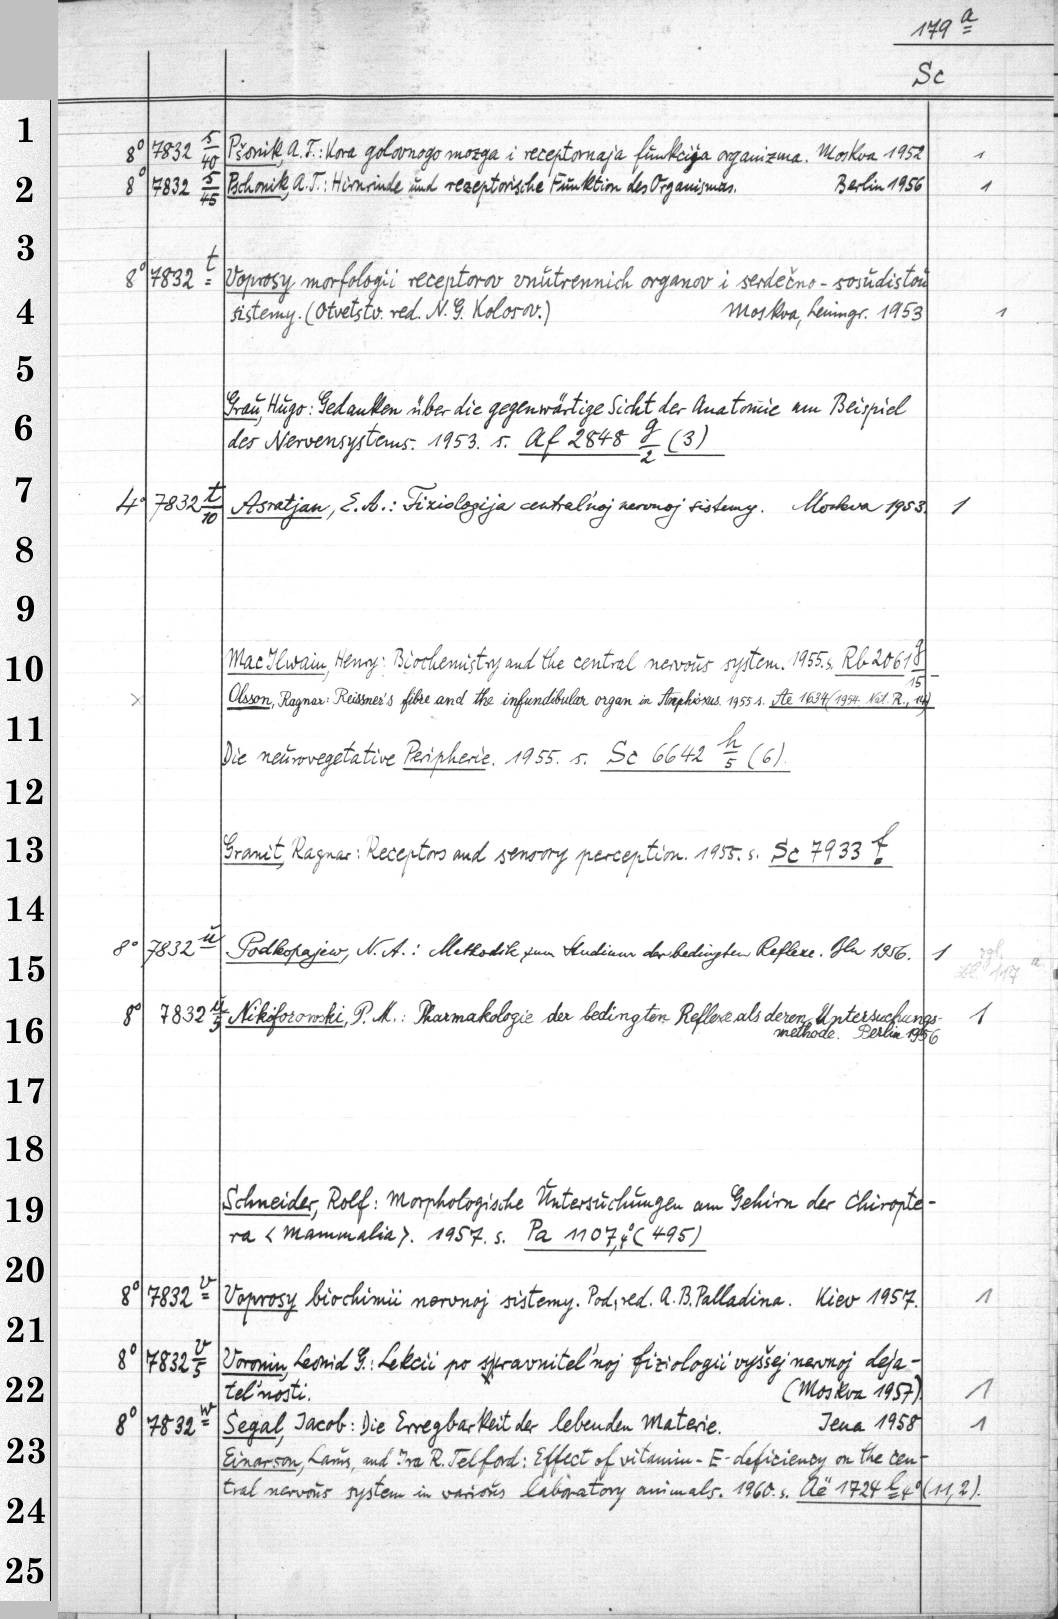 179 a
Sc
1
8° 7832 s/40 Pšonik, A.T.: Kora golovnogo mozga i receptornaja funkcija organizma. Moskva 1952 1
2
8° 7832 s/45 Pschonik, A.T.: Hirnrinde und rezeptorische Funktion des Organismus. Berlin 1956 1
3
8° 7832 t Voprosy morfologii receptorov vnutrennich organov i serdečno-sosudistoj
4
sistemy. (Otvetstv. red. N. G. Kolosov.) Moskva, Leningr. 1953 1
5
Grau, Hugo: Gedanken über die gegenwärtige Sicht der Anatomie am Beispiel
6
des Nervensystems. 1953. s. Af 2848 g/2 (3)
7
4° 7832 t/10 Asratjan, E.A.: Fiziologija central'noj nervnoj sistemy. Moskva 1953. 1
8
9
10
MacIlwain, Henry: Biochemistry and the central nervous system. 1955. s. Rb 2061 g/15
× Olsson, Ragnar: Reissner's fibre and the infundibular organ in Amphioxus. 1955 s. Ae 1634 (1954. Nat. R., 14)
11
Die neurovegetative Peripherie. 1955. s. Sc 6642 h/5 (6).
12
13
Granit, Ragnar: Receptors and sensory perception. 1955. s. Sc 7933 f
14
8° 7832 u Podkopajew, N.A.: Methodik zum Studium der bedingten Reflexe. Bln 1956. 1
15
vgl. 117 a
8° 7832 u/5 Nikiforowski, P.M.: Pharmakologie der bedingten Reflexe als deren Untersuchungs- 1
16
methode. Berlin 1956
17
18
19
Schneider, Rolf: Morphologische Untersuchungen am Gehirn der Chiropte-
ra <Mammalia>. 1957. s. Pa 1107, 4° (495)
20
8° 7832 v Voprosy biochimii nervnoj sistemy. Pod. red. A.B. Palladina. Kiev 1957. 1
21
8° 7832 v/5 Voronin, Leonid G.: Lekcii po sravnitel'noj fiziologii vyššej nervnoj deja-
22
tel'nosti. (Moskva 1957). 1
8° 7832 w Segal, Jacob: Die Erregbarkeit der lebenden Materie. Jena 1958 1
23
Einarson, Larus, and Ira R. Telford: Effect of vitamin-E-deficiency on the cen-
24
tral nervous system in various laboratory animals. 1960. s. Aë 1724 l 4° (11,2).
25